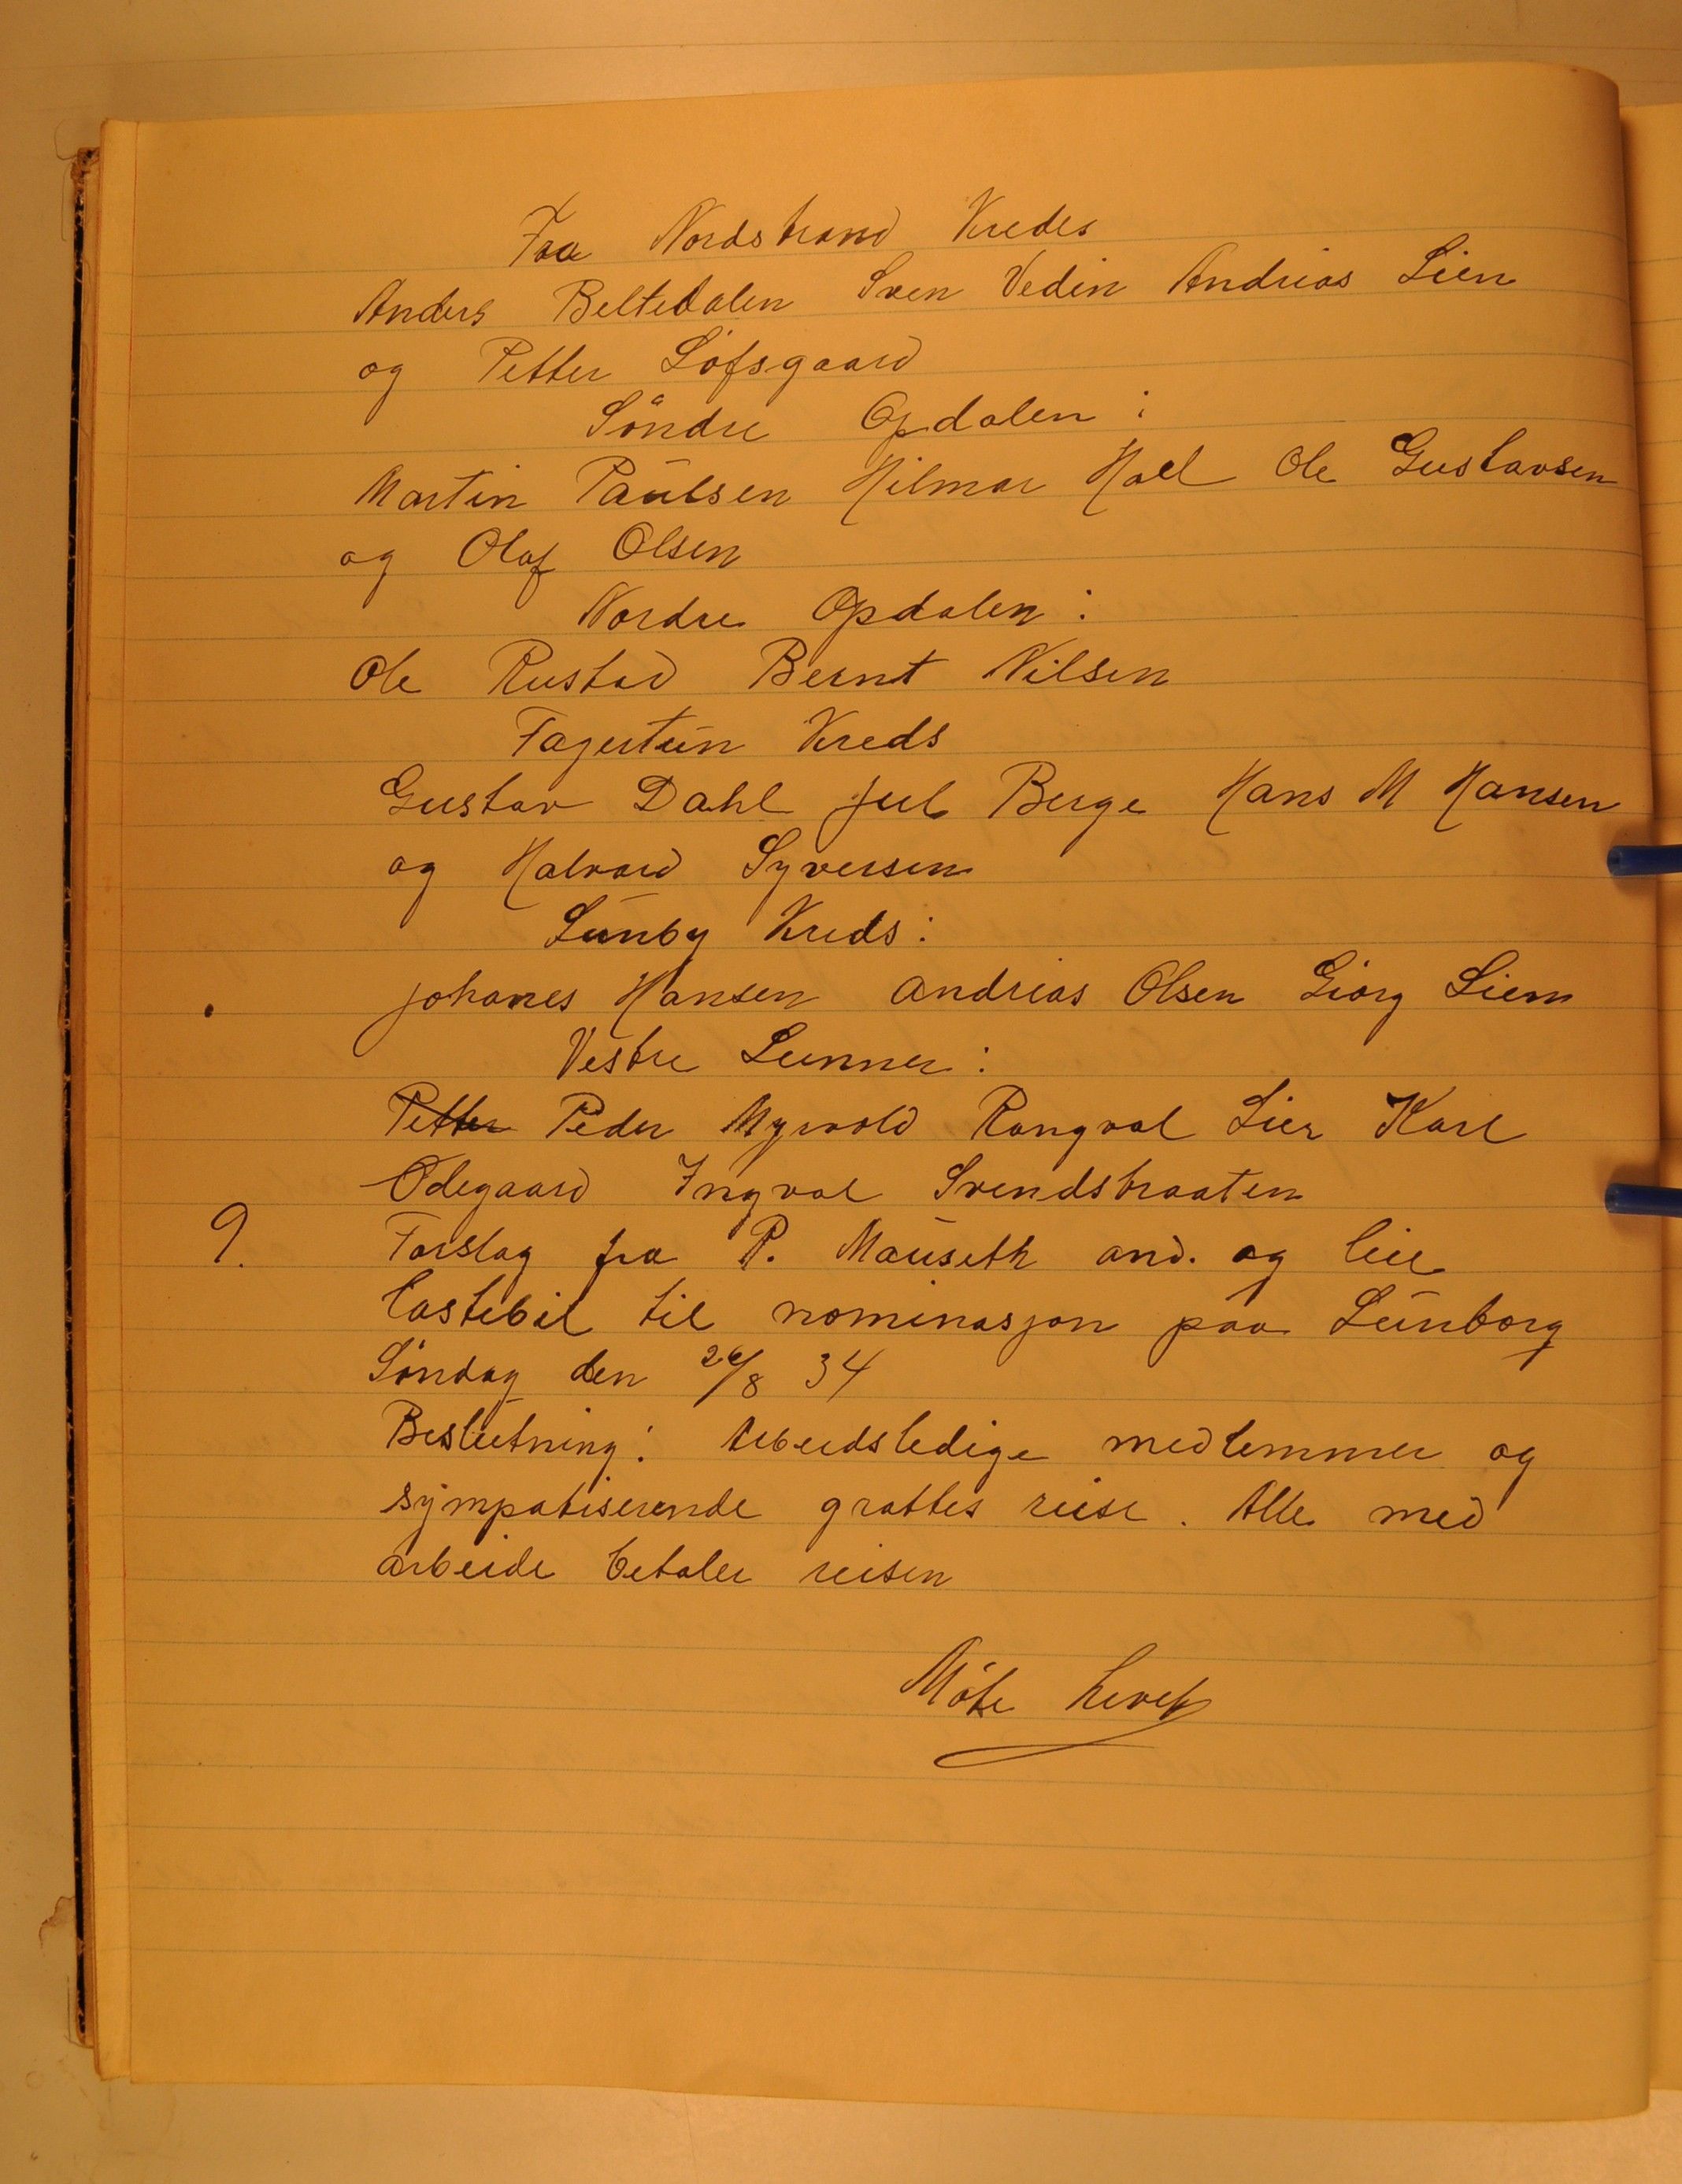 Fra Nordstrand Kredes
Anders Beltedalen Sven Vedin Andreas Lien
og Petter Löfsgaard
Söndre Opdalen :
Martin Paulsen Hilmar Hall Ole Gustavsen
og Olaf Olsen
Nordre Opdalen :
Ole Rustad Bernt Nilsen
Fagertun Kreds
Gustav Dahl Jul Berge Hans M Hansen
og Halvard Syversen
Lunby Kreds :
Johanes Hansen Andreas Olsen Giorg Liem
Vestre Lunner :
Petter Peder Myrvold Rangval Lier Karl
Ödegaard Ingval Svendsbraaten
9. Forslag fra P. Mauseth and. og leie
lastebil til nominasjon paa Lunborg
Söndag den 26/8 34
Beslutning : Arbeidsledige medlemmer og
sympatiserende grattes reise. Alle med
arbeide betaler reisen
Möte hevet